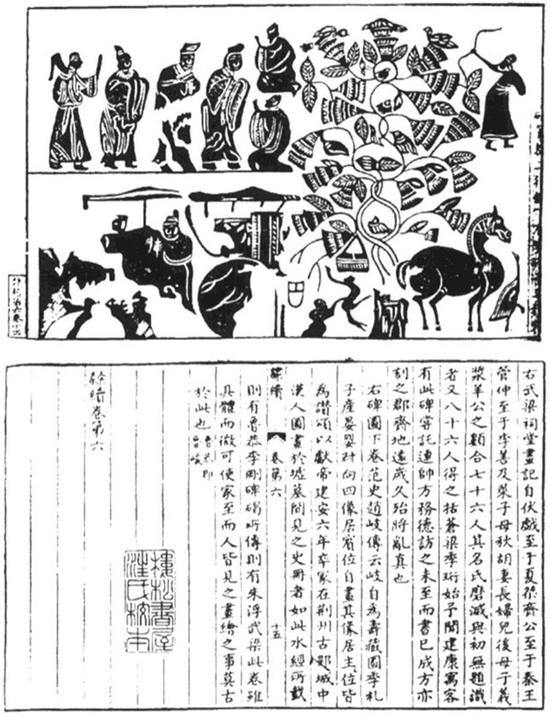 右武梁祠堂畫記自伏戲至于夏桀齊公至于秦王
管仲至于李善及萊子母秋胡妻長婦兒後母子義
漿羊公之類合七十六人其名氏磨滅與初無題識
者又八十六人得之括蒼梁季珩始予聞建康寓客
有此碑寄託連帥方務德訪之未至而書已成方亦
刻之郡齊地遠歲久殆將亂真也
右碑圖下卷范史趙岐傳云岐自為壽藏圖季札
子產晏嬰叔向四像居賓位自畫其像居主位皆
為讚頌以獻帝建安六年卒冢在荆州古郢城中
隸續 卷第六 十五
漢人圖畫於墟墓間見之史冊者如此水經所載
則有魯恭李剛碑碣所傳則有朱浮武梁此卷雖
具體而微可使家至而人皆見之畫繪之事莫古
於此也 魯恭即魯峻
隸續卷第六
樓松書屋
汪氏校本